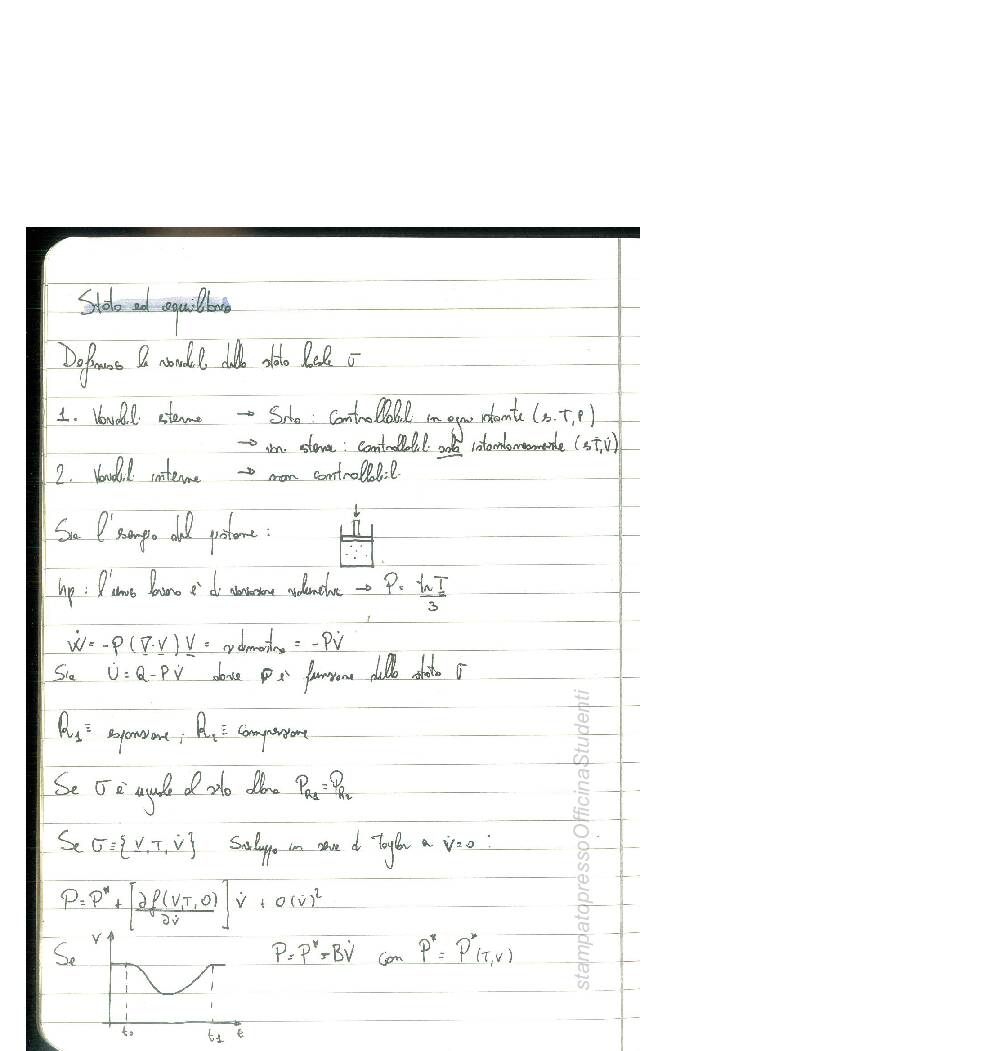 Stato ed equilibrio
Definisco le variabili dello stato locale σ
1. Variabili esterne → Stato : controllabili in ogni istante (s. T, P)
→ : controllabili solo istantaneamente (s T, V̇)
2. Variabili interne → non controllabili
Sia l'esempio del pistone :
hp : l'unico lavoro è di variazione volumetrica → P = tr T / 3
Ẇ = -P (∇·V) V = si dimostra = -PV̇
Sia U̇ = Q - PV̇ dove P è funzione dello stato σ
R₁ ≡ espansione ; R₂ ≡ compressione
Se σ è uguale allora P_R1 = P_R2
Se σ ≡ {V, T, V̇} Sviluppo in serie di Taylor a V̇=0 :
P = P* + [∂f(V,T,0)/∂V̇] V̇ + O(V̇)²
Se V P = P* = BV̇ con P* = P*(T,V)
t₀ t₁ t
stampatopressoOfficinaStudenti